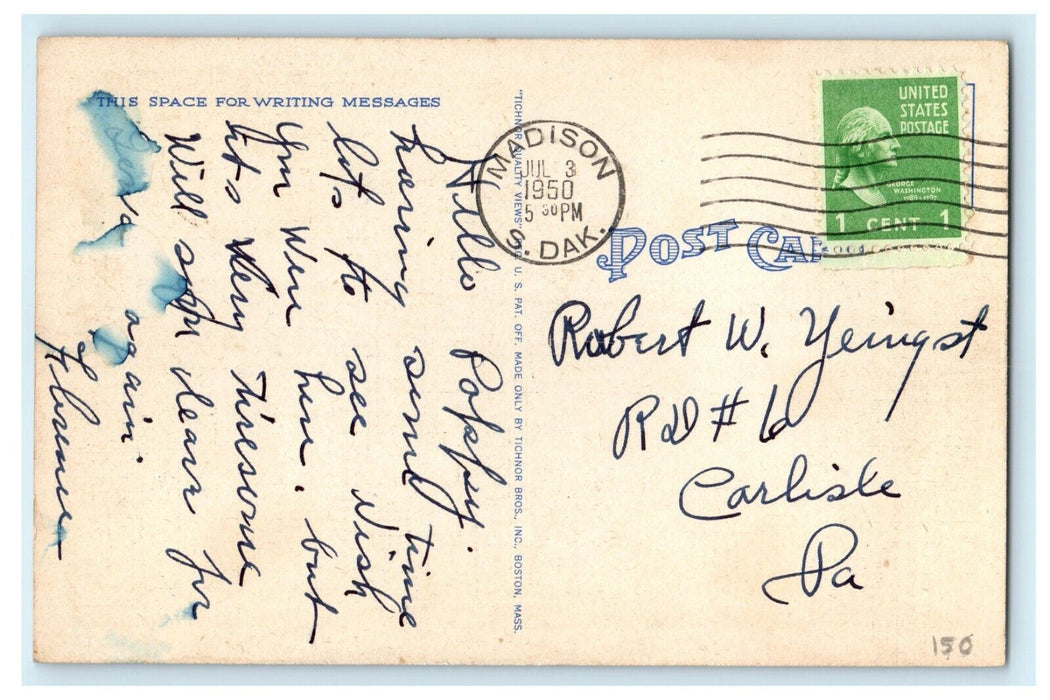 THIS SPACE FOR WRITING MESSAGES
Hello Poppy.
having some time
lots to see Wish
you were here. but
its very tiresome
Will soon leave for
again.
Florence
"TICHNOR QUALITY VIEWS" REG. U. S. PAT. OFF. MADE ONLY BY TICHNOR BROS., INC., BOSTON, MASS.
MADISON
JUL 3
1950
5 30 PM
S. DAK.
UNITED
STATES
POSTAGE
GEORGE
WASHINGTON
1789-1797
1 CENT 1
POST CA
Robert W. Yeingst
RD # 6
Carlisle
Pa
150